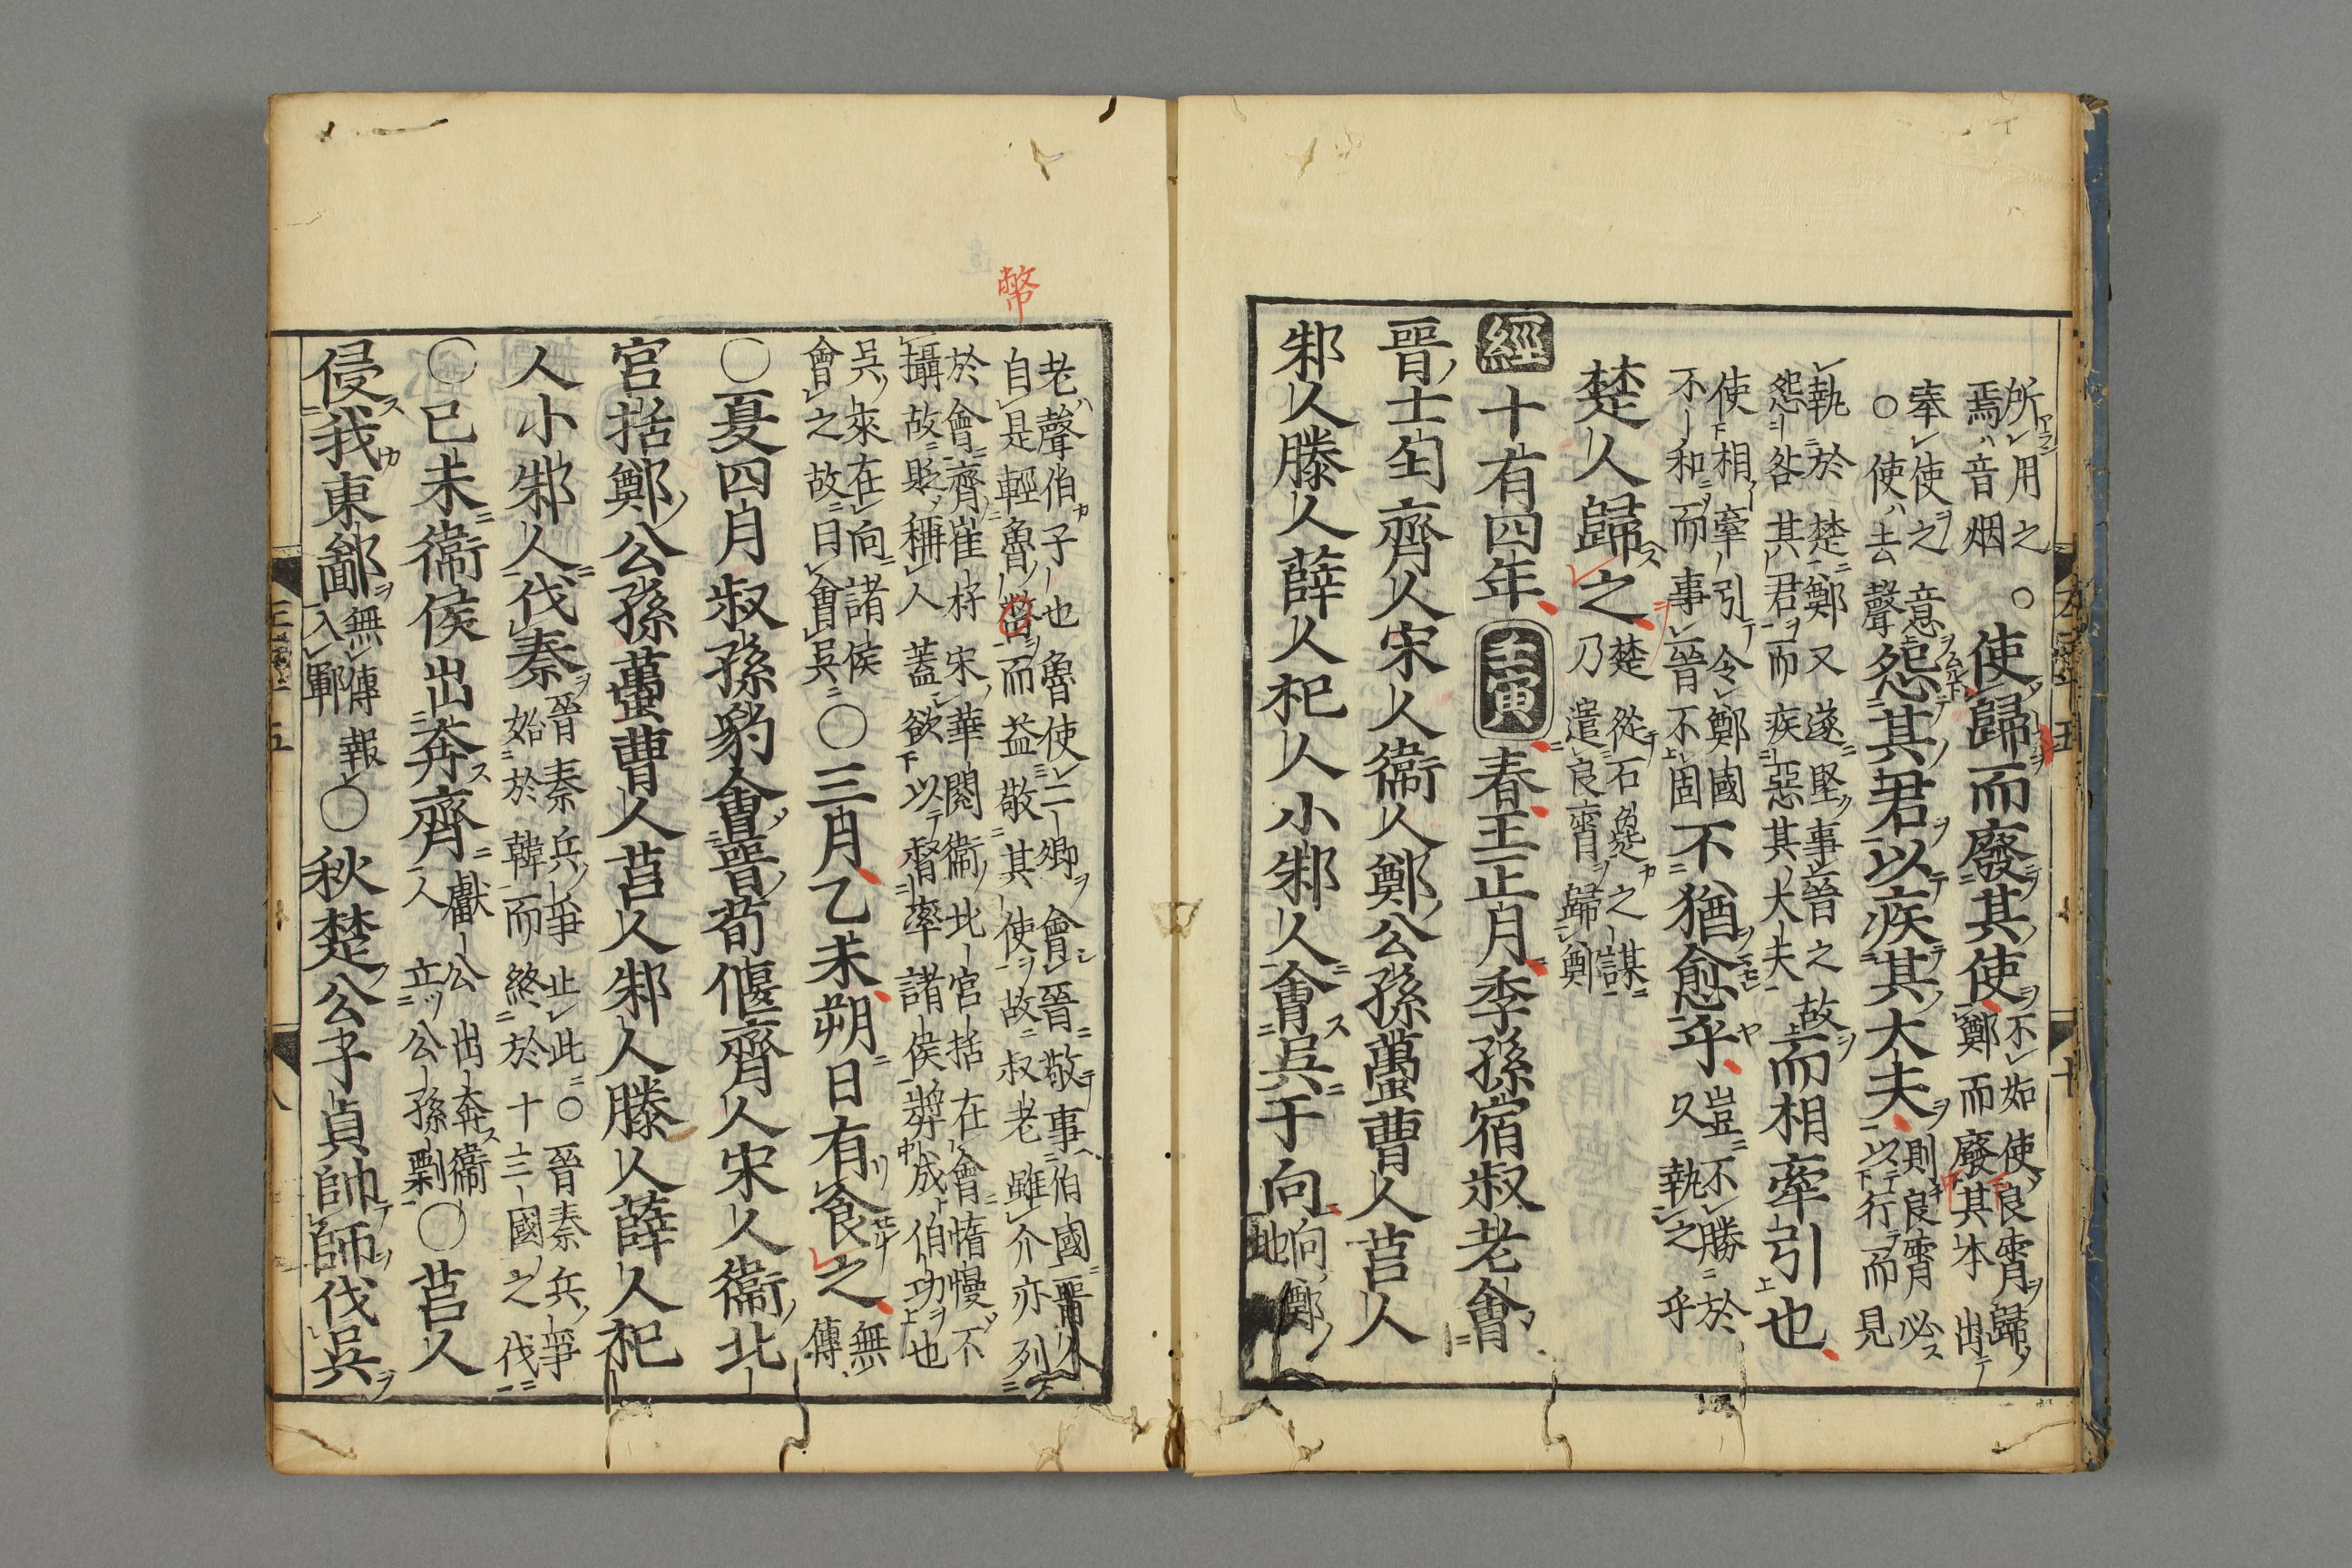 所用之
焉音烟
○使歸而廢其使
不如使良霄歸
鄭而廢其本出
奉使之意
○使去聲
怨其君以疾其大夫
則良霄必
以行而見
執於楚鄭又遂堅事晉之故
怨咎其君而疾惡其大夫
而相牽引也
使相牽引令鄭國
不和而事晉不固
不猶愈乎
豈不勝於
久執之乎
楚人歸之
楚從石㚟之謀
乃遣良霄歸鄭
經十有四年壬寅春王正月季孫宿叔老會
晉士匄齊人宋人衞人鄭公孫蠆曹人莒人
邾人滕人薛人杞人小邾人會吳于向
向鄭
地
老聲伯子也魯使二卿會晉敬事伯國晉人
自是輕魯幣而益敬其使故叔老雖介亦列
於會齊崔杼宋華閱衞北宮括在會惰慢不
攝故貶稱人蓋欲以督率諸侯奬成伯功也
吳來在向諸侯
會之故曰會吳
○三月乙未朔日有食之
無
傳
○夏四月叔孫豹會晉荀偃齊人宋人衞北
宮括鄭公孫蠆曹人莒人邾人滕人薛人杞
人小邾人伐秦
晉秦兵爭止此○晉秦兵爭
始於韓而終於十三國之伐
○己未衞侯出奔齊
獻公出奔衞
人立公孫剽
○莒人
侵我東鄙
無傳報
入鄆
○秋楚公子貞帥師伐吳
幣